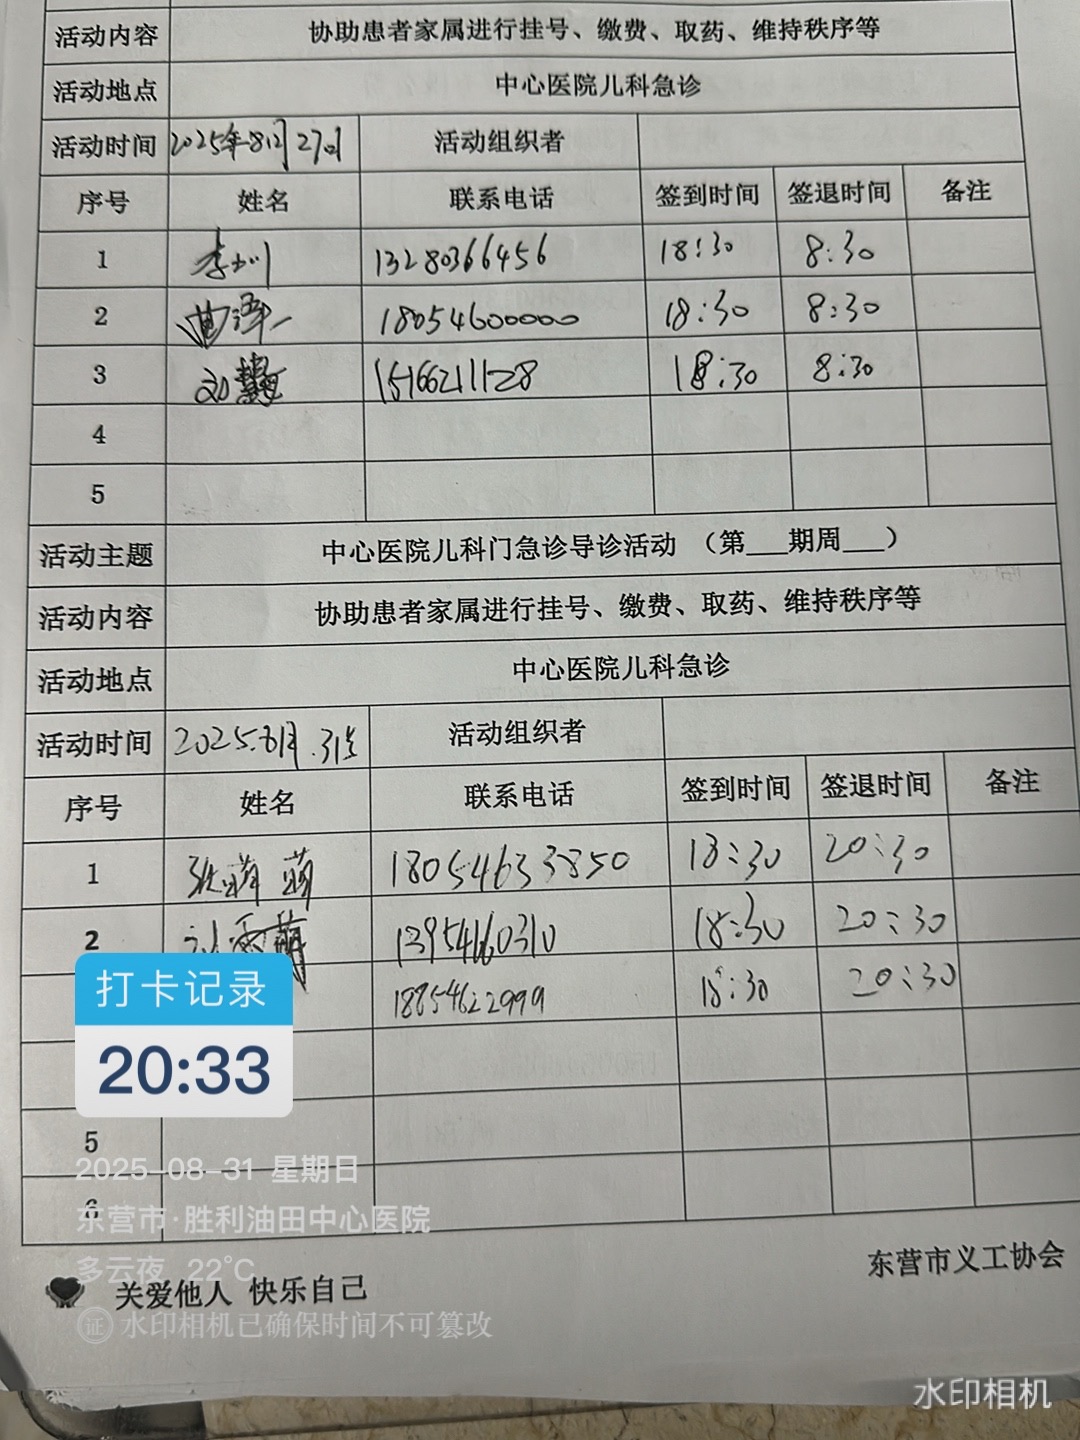 活动内容 协助患者家属进行挂号、缴费、取药、维持秩序等
活动地点 中心医院儿科急诊
活动时间 2025年8月27日 活动组织者
序号 姓名 联系电话 签到时间 签退时间 备注
1 13280366456 18:30 8:30
2 曲泽一 18054600000 18:30 8:30
3 刘慧 15166211128 18:30 8:30
4
5
活动主题 中心医院儿科门急诊导诊活动 （第___期周___）
活动内容 协助患者家属进行挂号、缴费、取药、维持秩序等
活动地点 中心医院儿科急诊
活动时间 2025.8月.31号 活动组织者
序号 姓名 联系电话 签到时间 签退时间 备注
1 张萌萌 18054633850 18:30 20:30
2 13954660310 18:30 20:30
18854622999 18:30 20:30
打卡记录
20:33
5
2025-08-31 星期日
6
东营市·胜利油田中心医院
多云夜 22°C
东营市义工协会
关爱他人 快乐自己
证 水印相机已确保时间不可篡改
水印相机